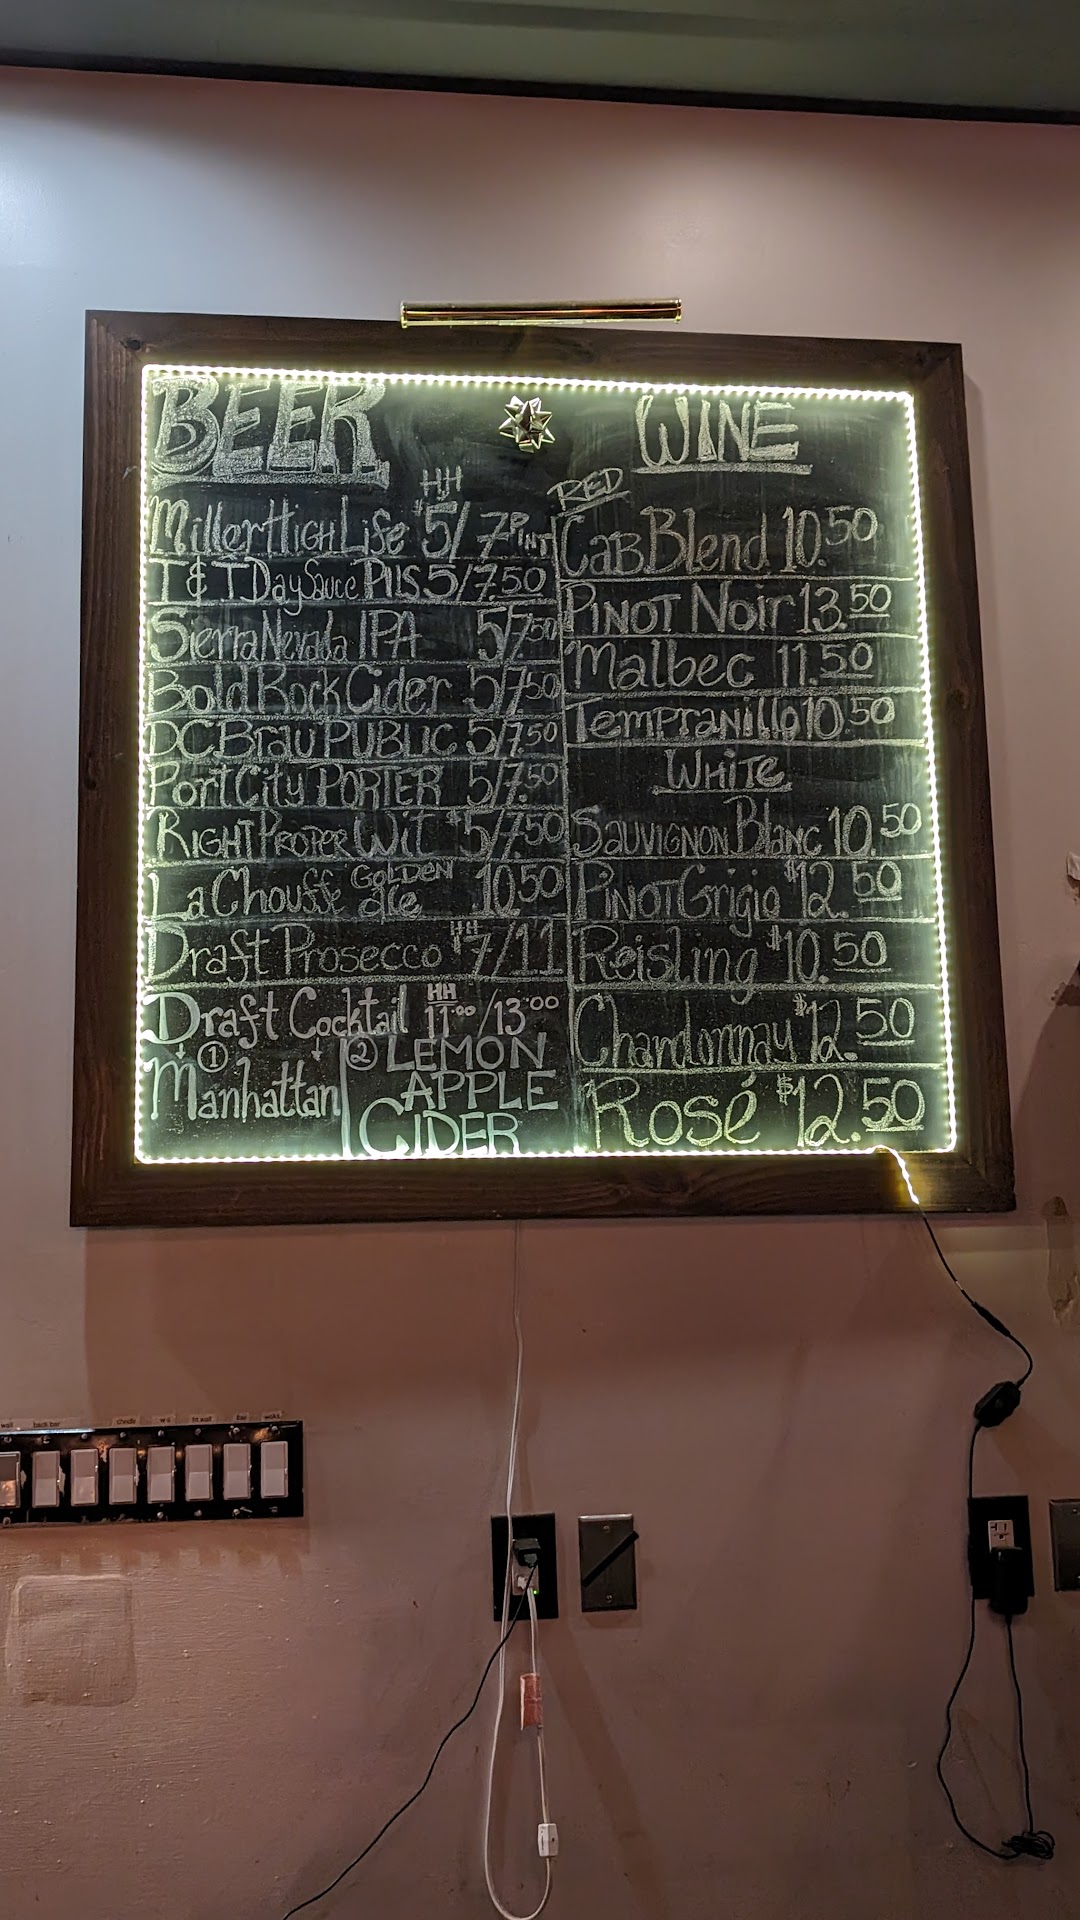 BEER
HH
Miller High Life $5/7 PINT
T&T Day Sauce PILS 5/7.50
Sierra Nevada IPA 5/7.50
Bold Rock Cider 5/7.50
DC Brau PUBLIC 5/7.50
Port City PORTER 5/7.50
RIGHT PROPER Wit $5/7.50
La Chouffe GOLDEN ale 10.50
Draft Prosecco HH $7/11
Draft Cocktail HH 11.00/13.00
① Manhattan
② LEMON
APPLE
CIDER
WINE
RED
CaB Blend 10.50
PINOT Noir 13.50
Malbec 11.50
Tempranillo 10.50
WHITE
SAUVIGNON Blanc 10.50
PINOT Grigio $12.50
Reisling $10.50
Chardonnay $12.50
Rosé $12.50
wall
back bar
bar